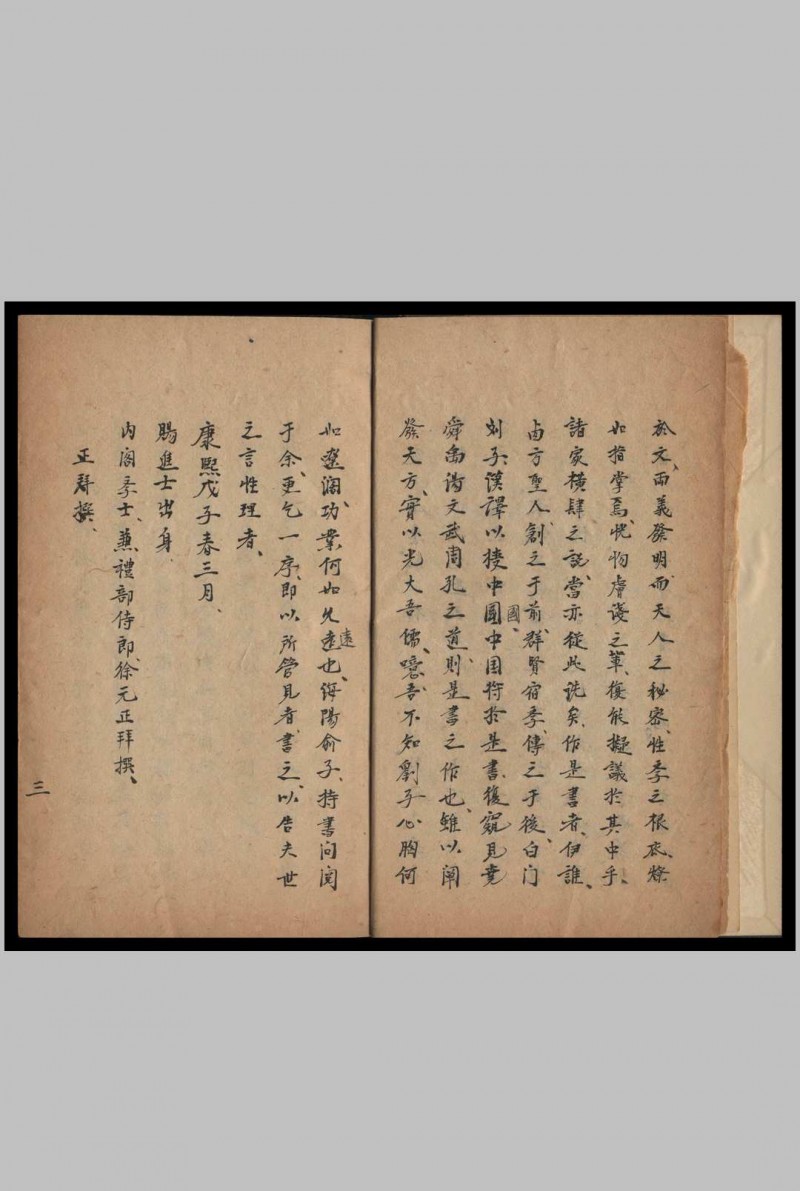 於文、而義發明、而天人之秘密、性學之根底、燦
如指掌焉、恍惚膚淺之輩、復能擬議於其中乎、
諸家橫肆之說、當亦從此詘矣、作是書者、伊誰、
西方聖人、創之于前、群賢宿學、傳之于後、白门
刘子、漢譯以授中圆國、中国将於是書、復窺見尭
舜禹湯文武周孔之道、則是書之作也、雖以闡
發天方、實以光大吾儒、噫、吾不知劉子心胸何
如遼濶、功業何如久逺遠也、海陽俞子、持書问閱
于余、更乞一序、即以所管見者書之、以告夫世
之言性理者、
康熙戊子春三月、
賜進士出身、
内阁学士、兼禮部侍郎、徐元正拜撰、
正拜撰、
三